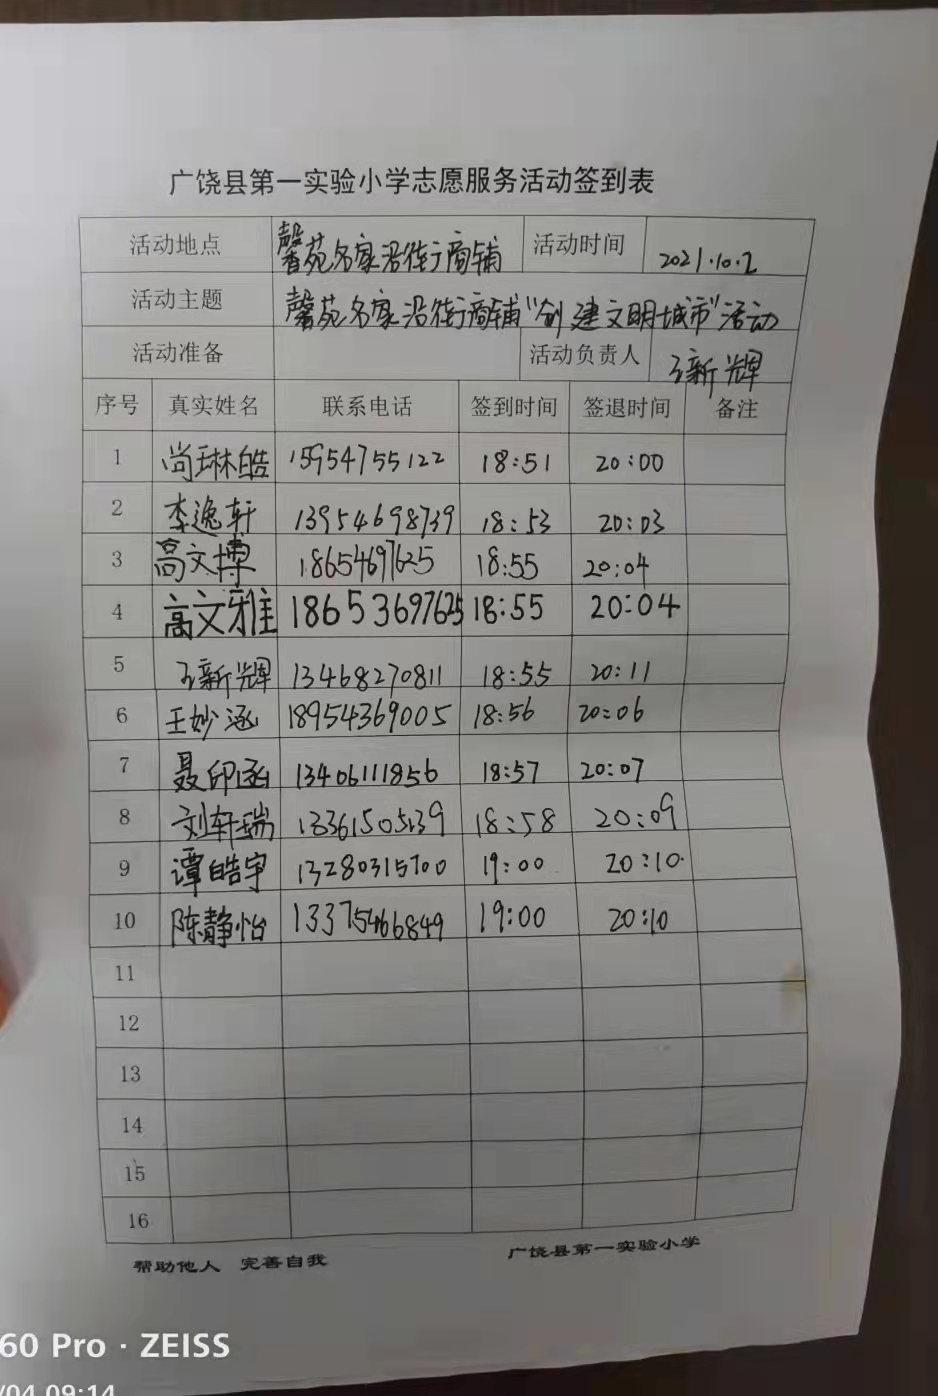 广饶县第一实验小学志愿服务活动签到表
活动地点 馨苑名家沿街商铺 活动时间 2021.10.2
活动主题 馨苑名家沿街商铺“创建文明城市”活动
活动准备 活动负责人 王新辉
序号 真实姓名 联系电话 签到时间 签退时间 备注
1 尚琳皓 15954755122 18:51 20:00
2 李逸轩 13954698739 18:53 20:03
3 高文博 18654697625 18:55 20:04
4 高文雅 18653697625 18:55 20:04
5 王新辉 13468270811 18:55 20:11
6 王妙涵 18954369005 18:56 20:06
7 聂印函 13406111856 18:57 20:07
8 刘轩瑞 13361505139 18:58 20:09
9 谭皓宇 13280315700 19:00 20:10
10 陈静怡 13375466849 19:00 20:10
11
12
13
14
15
16
帮助他人 完善自我 广饶县第一实验小学
60 Pro · ZEISS
/04 09:14